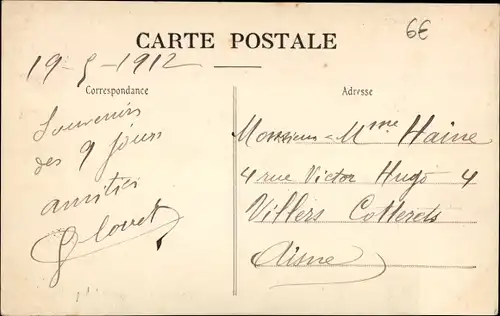 CARTE POSTALE
6€
19-5-1912
Correspondance
Adresse
Souvenirs
des 9 jours
amitiés
Monsieur-Mme Haine
4 rue Victor Hugo 4
Villers Cotterets
Aisne